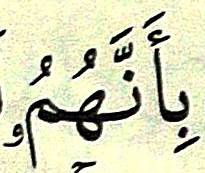 بِأَنَّهُمُ